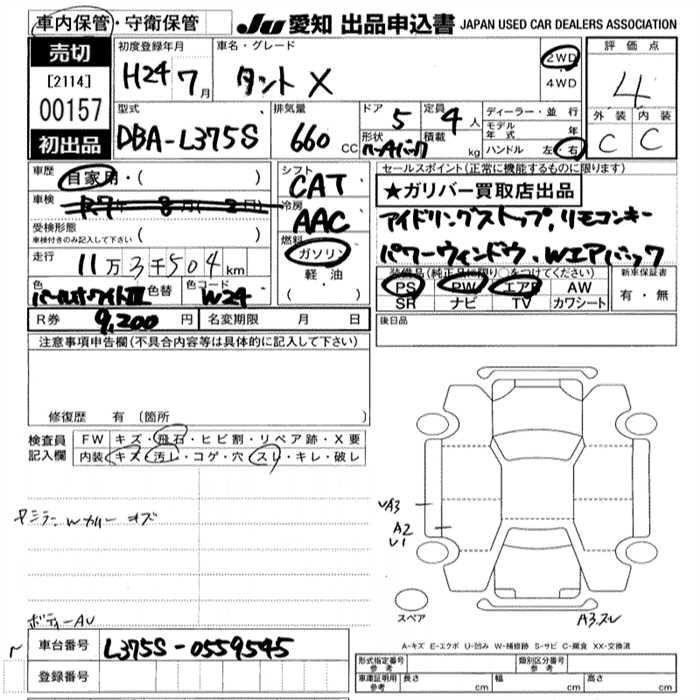 車内保管・守衛保管
JU 愛知 出品申込書 JAPAN USED CAR DEALERS ASSOCIATION
売切
[2114]
00157
初出品
初度登録年月
H24 7月
車名・グレード
タント X
2WD
4WD
評価点
4
外装 内装
C C
型式
DBA-L375S
排気量
660 CC
ドア 5
定員 4人
形状
積載 kg
ディーラー・並行
モデル年式 年
ハンドル 左・右
車歴 自家用・( )
車検 R7年 8月( 2日)
受検形態
車検付きのみ記入して下さい ( )
走行 11万3千504km
色 パールホワイトIII 色替 色コード W24
R券 9,200円 名変期限 月 日
シフト
CAT
冷房
AAC
燃料
ガソリン
軽・油
( ・ )
セールスポイント(正常に機能するものに限ります)
★ガリバー買取店出品
アイドリングストップ,リモコンキー
パワーウィンドウ、Wエアバック
装備品(純正品に限り○をつけてください)
PS PW エアB AW
SR ナビ TV カワシート
新車保証書
有・無
後日品
注意事項申告欄(不具合内容等は具体的に記入して下さい)
修復歴 有 (箇所
検査員記入欄
FW キズ・飛石・ヒビ割・リペア跡・X要
内装 キズ・汚レ・コゲ・穴・スレ・キレ・破レ
ボディーAU
UA3
A2
U1
スペア
A3スレ
車台番号 L375S-0559545
登録番号
A-キズ E-エクボ U-凹み W-補修跡 S-サビ C-腐食 XX-交換済
形式指定番号 参考 類別区分番号 参考
車庫証明用 参考 長さ cm 幅 cm 高さ cm